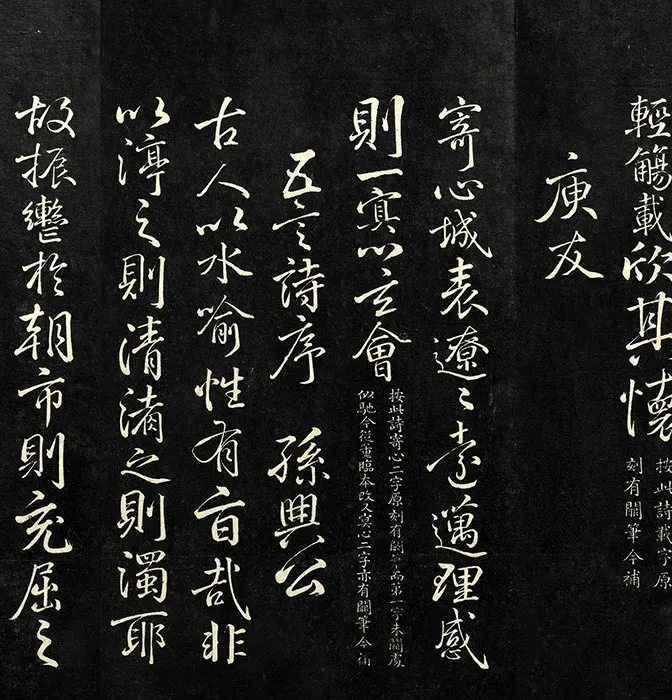 輕觴載欣其懷
按此詩載字原
刻有闕筆今補
庾友
寄心城表遼〻遠邁理感
則一㝠心玄會
按此詩寄心二字原刻有闕筆而第一字未闕處
似馳今從董臨本改又㝠心二字亦有闕筆今補
五言詩序 孫興公
古人以水喻性有旨哉非
以渟之則清淆之則濁耶
故振轡於朝市則充屈之